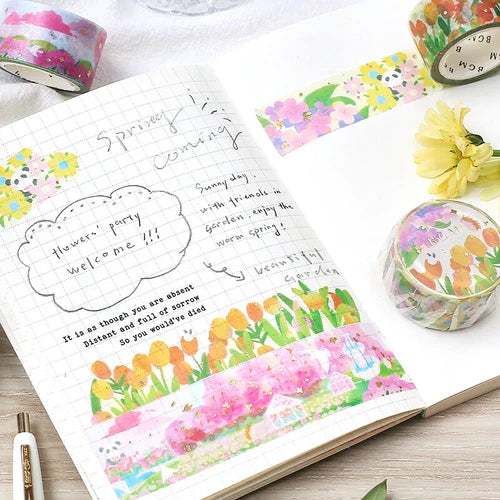 Spring
coming
flowers' party
welcome !!!
Sunny day.
with friends in
Garden, enjoy the
warm Spring!
beautiful
Garden
It is as though you are absent
Distant and full of sorrow
So you would've died
BGM
BGM